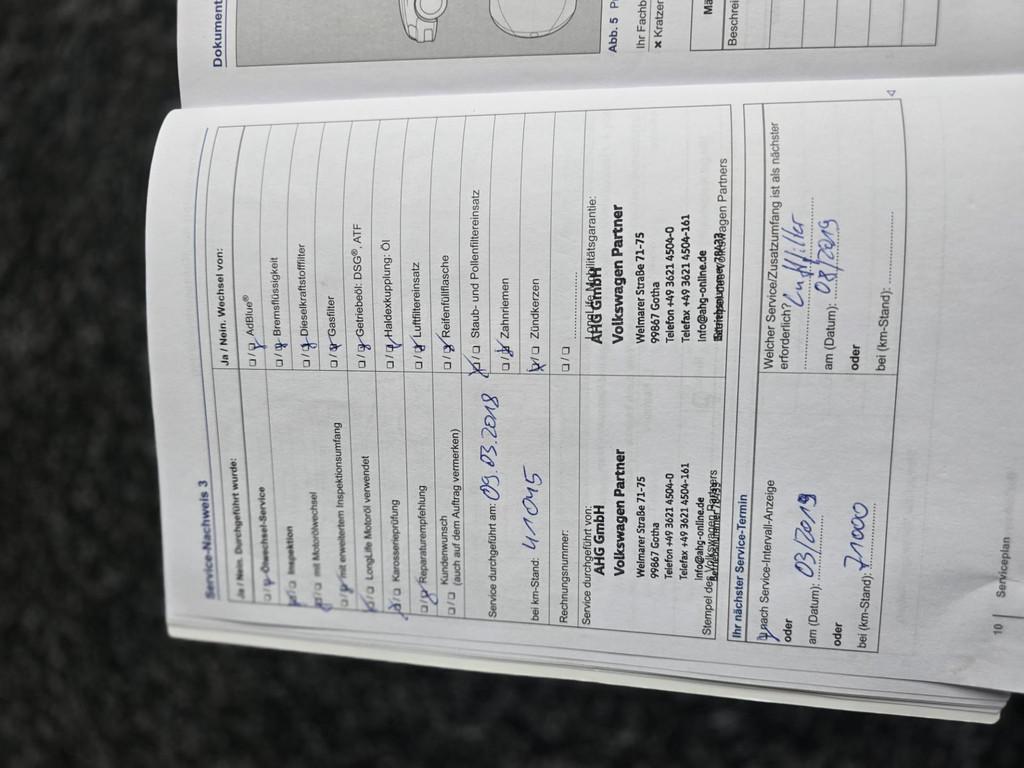 Dokument
Abb. 5
Ihr Fachb
× Kratzer
Mä
Beschrei
Service-Nachweis 3
Ja / Nein. Durchgeführt wurde:
☐ / ☒ Ölwechsel-Service
☒ / ☐ Inspektion
☒ / ☐ mit Motorölwechsel
☐ / ☒ mit erweitertem Inspektionsumfang
☒ / ☐ LongLife Motoröl verwendet
☒ / ☐ Karosserieprüfung
☐ / ☒ Reparaturempfehlung
☐ / ☐ Kundenwunsch
(auch auf dem Auftrag vermerken)
Service durchgeführt am: 09.03.2018
bei km-Stand: 41015
Rechnungsnummer:
Service durchgeführt von:
AHG GmbH
Volkswagen Partner
Weimarer Straße 71-75
99867 Gotha
Telefon +49 3621 4504-0
Telefax +49 3621 4504-161
Info@ahg-online.de
Stempel des Volkswagen Partners
Ja / Nein. Wechsel von:
☐ / ☒ AdBlue®
☐ / ☒ Bremsflüssigkeit
☐ / ☒ Dieselkraftstofffilter
☐ / ☒ Gasfilter
☐ / ☒ Getriebeöl: DSG®, ATF
☐ / ☒ Haldexkupplung: Öl
☐ / ☒ Luftfiltereinsatz
☐ / ☒ Reifenfüllflasche
☒ / ☐ Staub- und Pollenfiltereinsatz
☐ / ☒ Zahnriemen
☒ / ☐ Zündkerzen
☐ / ☐
LongLife Mobilitätsgarantie:
AHG GmbH
Volkswagen Partner
Weimarer Straße 71-75
99867 Gotha
Telefon +49 3621 4504-0
Telefax +49 3621 4504-161
Info@ahg-online.de
Stempel des Volkswagen Partners
Ihr nächster Service-Termin
☒ nach Service-Intervall-Anzeige
oder
am (Datum): 03/2019
oder
bei (km-Stand): 71000
Welcher Service/Zusatzumfang ist als nächster
erforderlich? Luftfilter
am (Datum): 08/2019
oder
bei (km-Stand):
10 Serviceplan